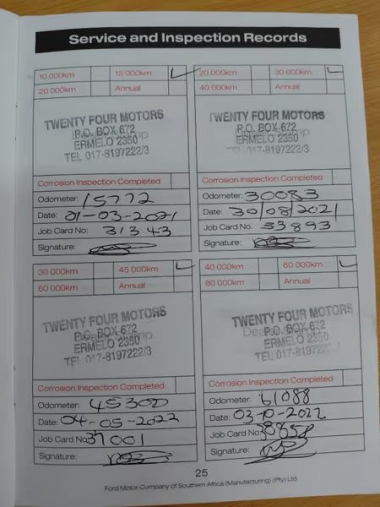 Service and Inspection Records
10 000km 15 000km
20 000km Annual
TWENTY FOUR MOTORS
P.O. BOX 672
ERMELO 2350
TEL 017-8197222/3
Corrosion Inspection Completed
Odometer: 15772
Date: 01-03-2021
Job Card No: 31343
Signature:
20 000km 30 000km
40 000km Annual
TWENTY FOUR MOTORS
P.O. BOX 672
ERMELO 2350
TEL 017-8197222/3
Corrosion Inspection Completed
Odometer: 30083
Date: 30/08/2021
Job Card No: 33893
Signature:
30 000km 45 000km
60 000km Annual
TWENTY FOUR MOTORS
P.O. BOX 672
ERMELO 2350
TEL 017-8197222/3
Corrosion Inspection Completed
Odometer: 45300
Date: 04-05-2022
Job Card No: 37001
Signature:
40 000km 60 000km
80 000km Annual
TWENTY FOUR MOTORS
P.O. BOX 672
ERMELO 2350
TEL 017-8197222
Corrosion Inspection Completed
Odometer: 61088
Date: 03-10-2022
Job Card No: 38858
Signature:
25
Ford Motor Company of Southern Africa (Manufacturing) (Pty) Ltd